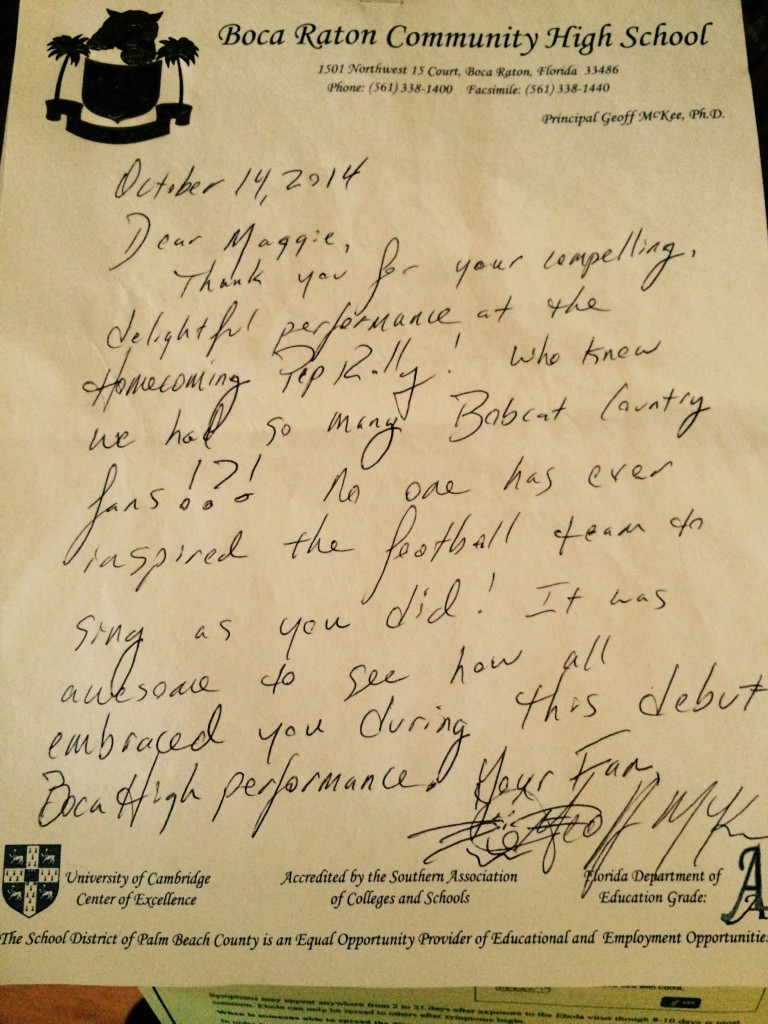 Boca Raton Community High School
1501 Northwest 15 Court, Boca Raton, Florida 33486
Phone: (561) 338-1400 Facsimile: (561) 338-1440
Principal Geoff McKee, Ph.D.
October 14, 2014
Dear Maggie,
Thank you for your compelling,
delightful performance at the
Homecoming Pep Rally! Who knew
we had so many Bobcat Country
fans!?! No one has ever
inspired the football team to
sing as you did! It was
awesome to see how all
embraced you during this debut
Boca High performance. Your Fan,
Geoff McK
University of Cambridge
Center of Excellence
Accredited by the Southern Association
of Colleges and Schools
Florida Department of
Education Grade:
A
The School District of Palm Beach County is an Equal Opportunity Provider of Educational and Employment Opportunities
Symptoms may appear anywhere from 2 to 21 days after exposure to the Ebola virus though 8-10 days is most
common. Ebola can only be spread to others after symptoms begin.